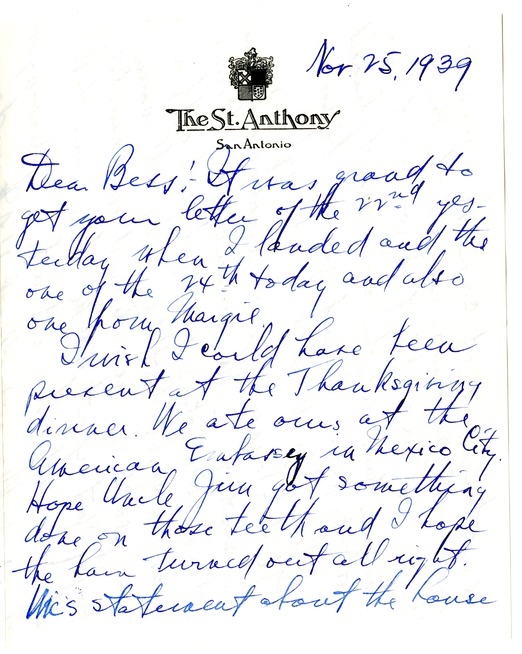 Nov. 25, 1939
The St. Anthony
San Antonio
Dear Bess:- It was grand to
get your letter of the 22nd yes-
terday when I landed and the
one of the 24th today and also
one from Margie.
I wish I could have been
present at the Thanksgiving
dinner. We ate ours at the
American Embassy in Mexico City.
Hope Uncle Jim got something
done on those teeth and I hope
the ham turned out all right.
statement about the house